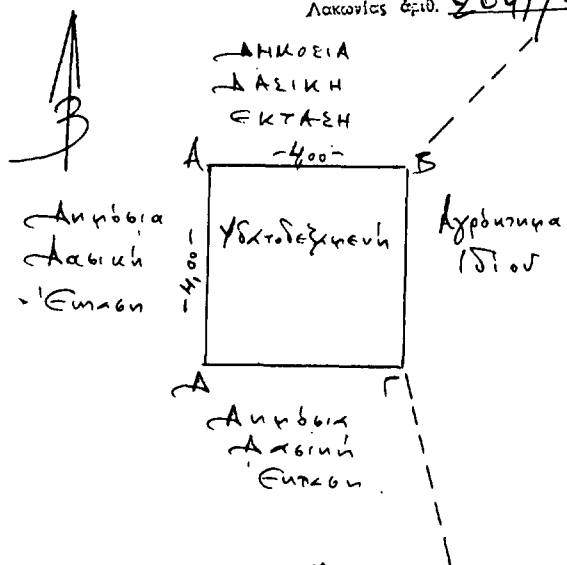 Λακωνίας ἀριθ.
ΔΗΜΟΣΙΑ
ΔΑΣΙΚΗ
ΕΚΤΑΣΗ
Β
Α -4,00- Β
Δημόσια
Δασική
Έκταση
-4,00-
Υδατοδεξαμενή
Αγρόκτημα
Ιδίου
Δ Γ
Δημόσια
Δασική
Έκταση